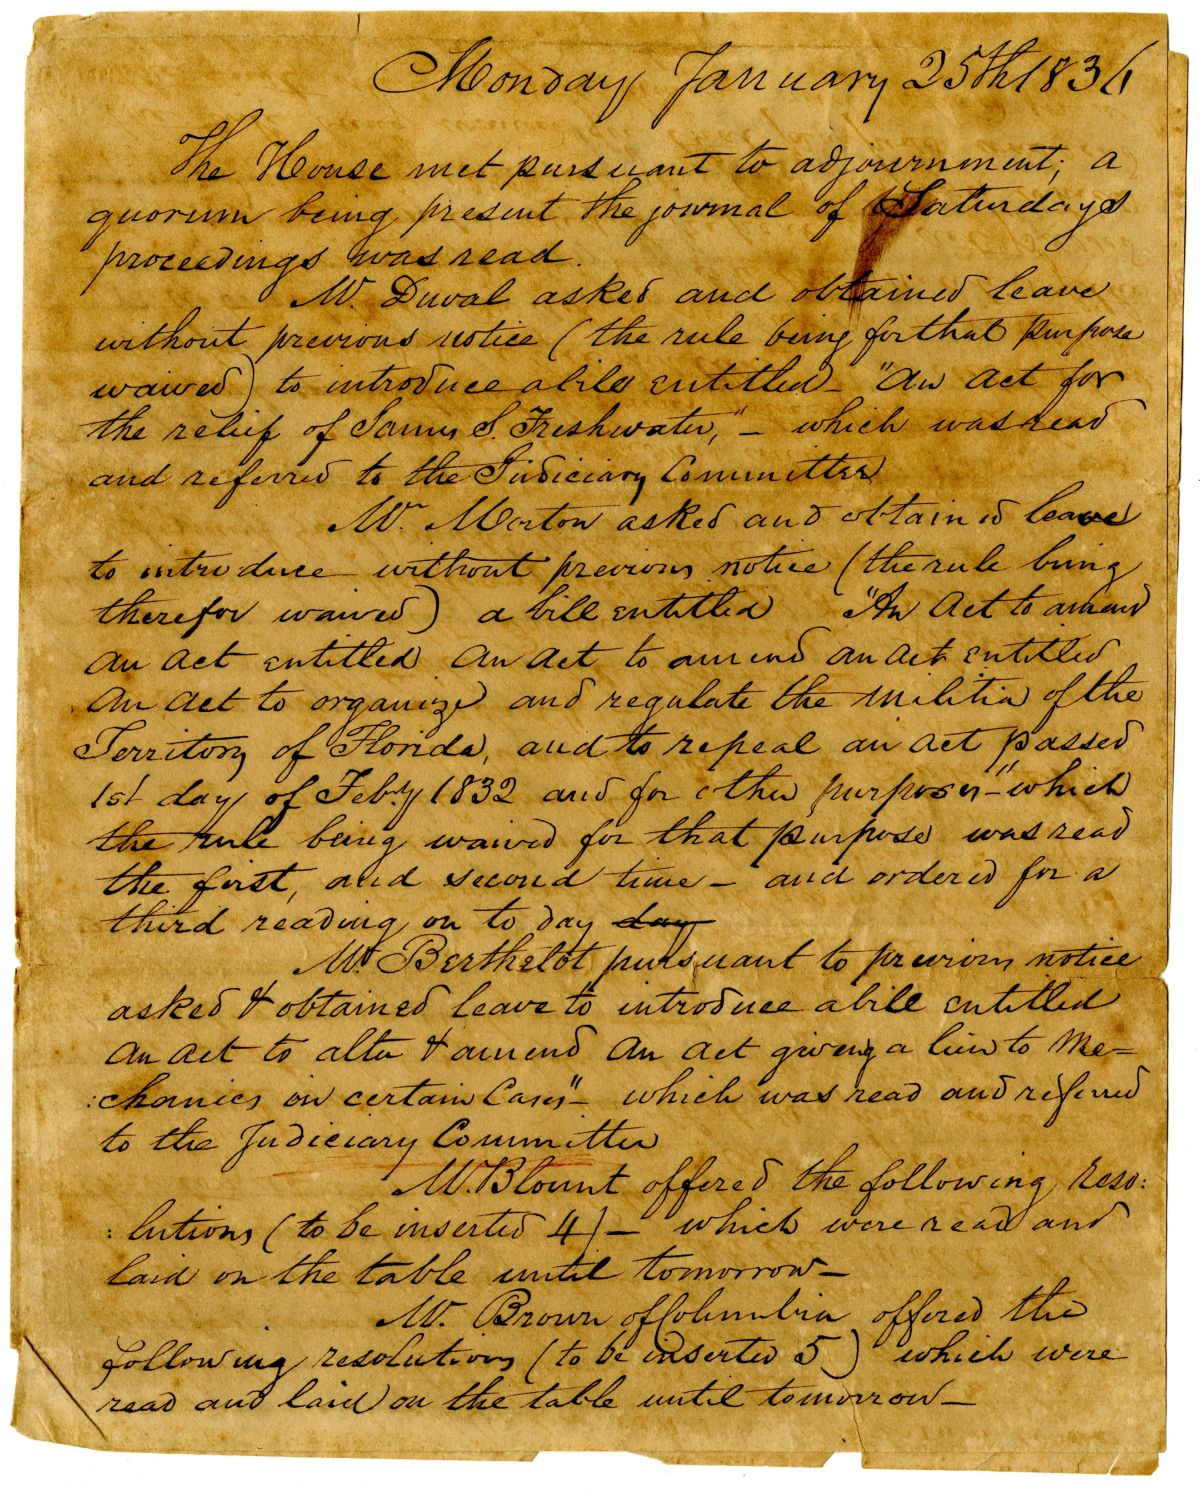 Monday January 25th 1836
The House met pursuant to adjournment; a
quorum being present the journal of Saturdays
proceedings was read.
Mr. Duval asked and obtained leave
without previous notice (the rule being for that purpose
waived) to introduce a bill entitled - "An Act for
the relief of James S. Freshwater," - which was read
and referred to the Judiciary Committee
Mr. Morton asked and obtained leave
to introduce without previous notice (the rule being
therefor waived) a bill entitled "An Act to amend
an act entitled an act to amend an act entitled
an act to organize and regulate the Militia of the
Territory of Florida, and to repeal an act passed
1st day of Feby 1832 and for other purposes"- which
the rule being waived for that purpose was read
the first, and second time - and ordered for a
third reading on to day day
Mr Berthelot pursuant to previous notice
asked & obtained leave to introduce a bill entitled
an act to alter & amend an act giveng a lien to Me=
:chanics in certain Cases"- which was read and referred
to the Judiciary Committee
Mr. Blount offered the following reso:
:lutions (to be inserted 4) - which were read and
laid on the table until tomorrow -
Mr. Brown of Columbia offered the
following resolutions (to be inserted 5) which were
read and laid on the table until tomorrow -